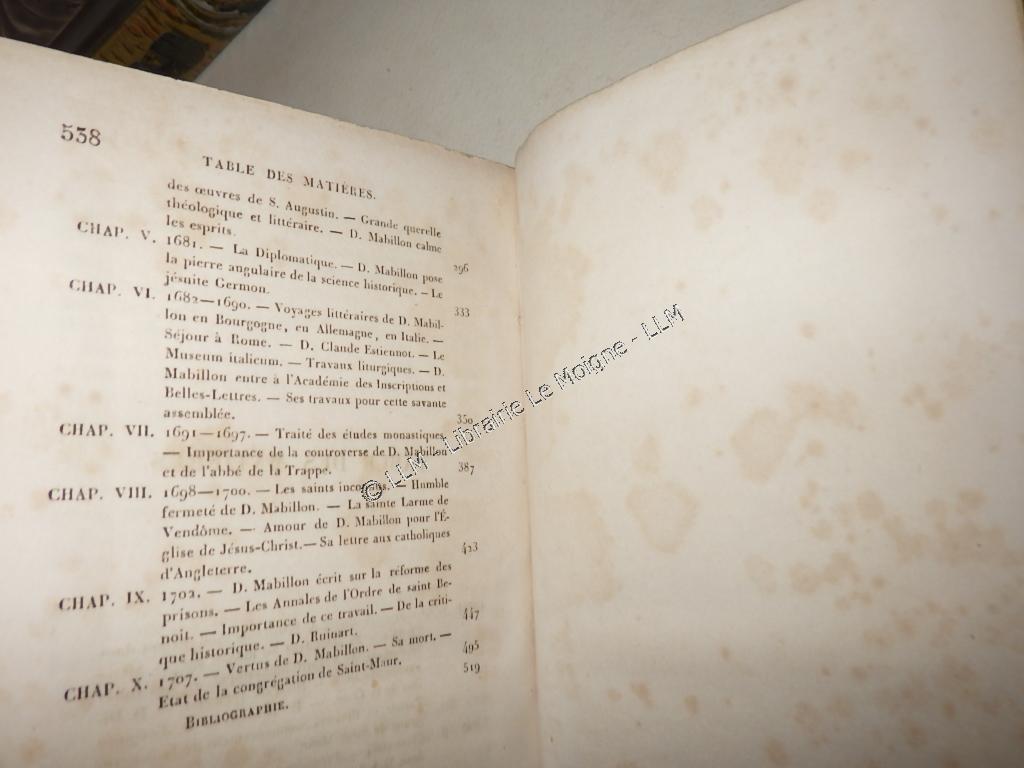 538
TABLE DES MATIÈRES.
des œuvres de S. Augustin. — Grande querelle
théologique et littéraire. — D. Mabillon calme
les esprits. 296
CHAP. V. 1681. — La Diplomatique. — D. Mabillon pose
la pierre angulaire de la science historique. — Le
jésuite Germon. 333
CHAP. VI. 1682—1690. — Voyages littéraires de D. Mabil-
lon en Bourgogne, en Allemagne, en Italie. —
Séjour à Rome. — D. Claude Estiennot. — Le
Museum italicum. — Travaux liturgiques. — D.
Mabillon entre à l'Académie des Inscriptions et
Belles-Lettres. — Ses travaux pour cette savante
assemblée. 350
CHAP. VII. 1691—1697. — Traité des études monastiques.
— Importance de la controverse de D. Mabillon
et de l'abbé de la Trappe. 387
CHAP. VIII. 1698—1700. — Les saints inconnus. — Humble
fermeté de D. Mabillon. — La sainte Larme de
Vendôme. — Amour de D. Mabillon pour l'É-
glise de Jésus-Christ. — Sa lettre aux catholiques
d'Angleterre. 423
CHAP. IX. 1702. — D. Mabillon écrit sur la réforme des
prisons. — Les Annales de l'Ordre de saint Be-
noît. — Importance de ce travail. — De la criti-
que historique. — D. Ruinart. 447
CHAP. X. 1707. — Vertus de D. Mabillon. — Sa mort. —
État de la congrégation de Saint-Maur. 495
BIBLIOGRAPHIE. 519
© LLM - Librairie Le Moigne - LLM